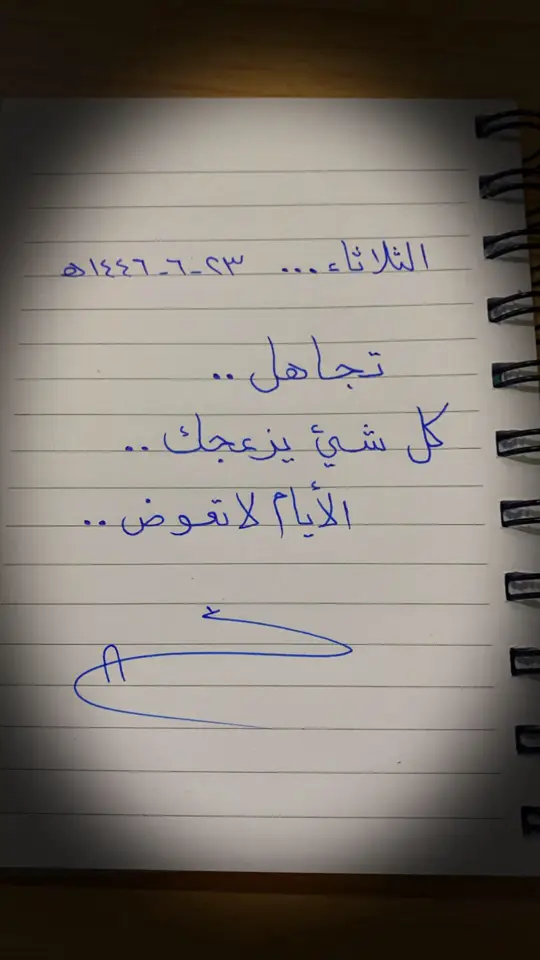 الثلاثاء... ٢٣-٦-١٤٤٦ه
تجاهل..
كل شيئ يزعجك..
الأيام لاتعوض..